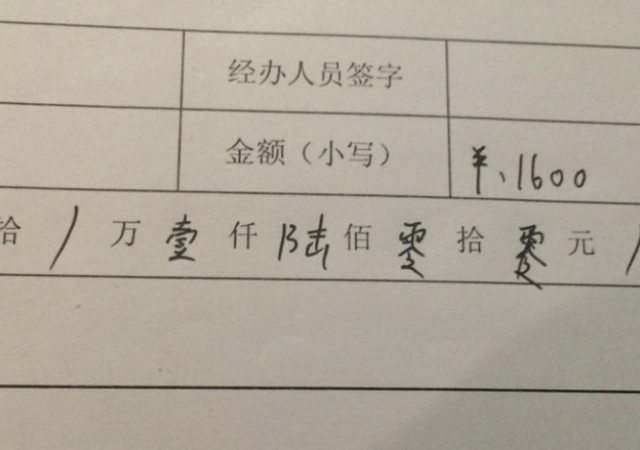 经办人员签字
金额（小写） ￥、1600
拾 / 万 壹 仟 陆 佰 零 拾 零 元 /